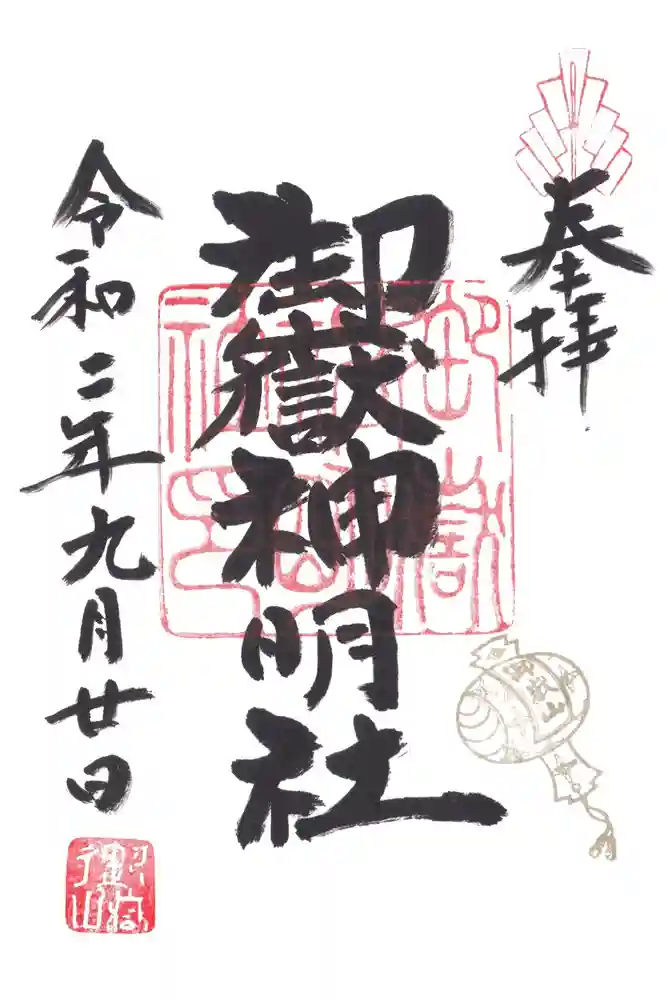 奉拝
御嶽神明社
令和二年九月廿日
御嶽山